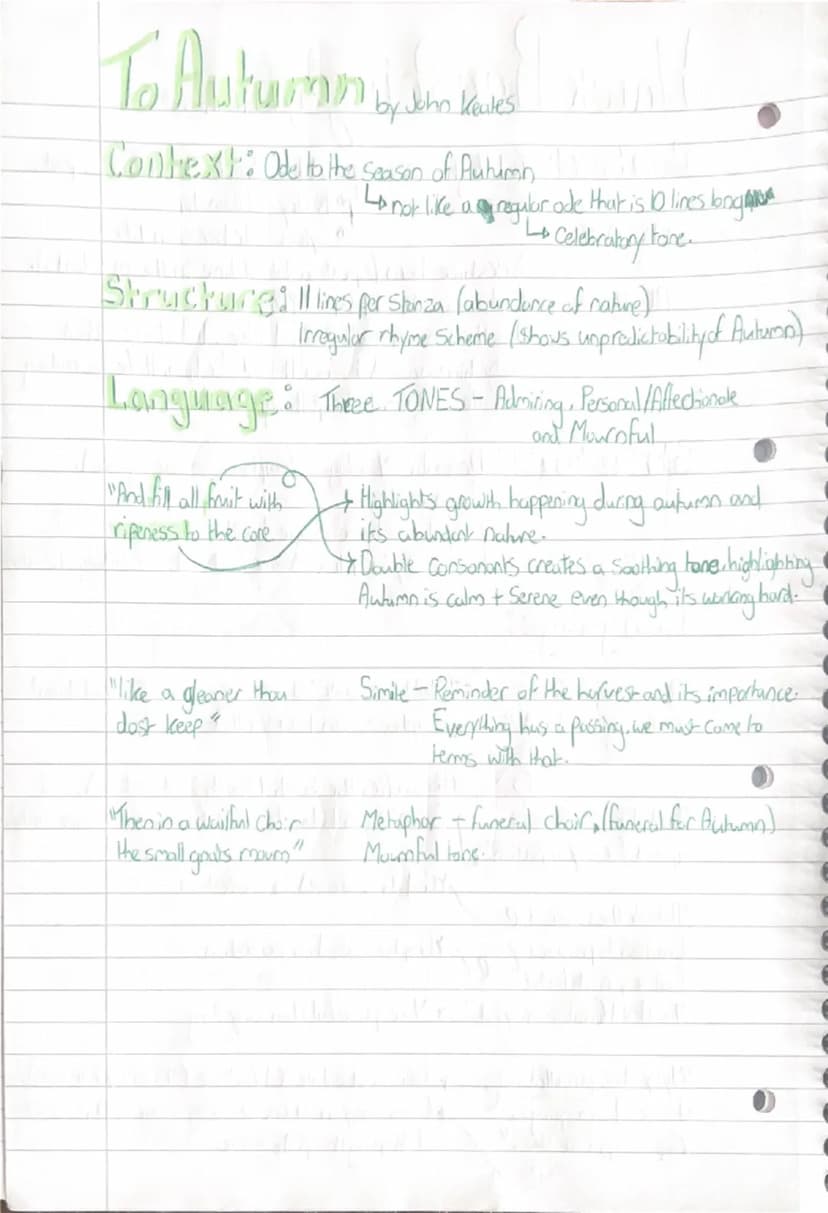 To Autumn by John Keates
Context: Ode to the season of Autumn
↳ not like a regular ode that is 10 lines long
↳ Celebratory tone.
Structure: 11 lines per stanza (abundance of nature)
Irregular rhyme scheme (shows unpredictability of Autumn)
Language: Three TONES - Admiring, Personal/Affectionate
and Mournful
"And fill all fruit with
ripeness to the core
→ Highlights growth happening during autumn and
it's abundant nature.
→ Double consonants creates a soothing tone, highlighting
Autumn is calm + serene even though its working hard.
"like a gleaner thou
dost keep"
Simile - Reminder of the harvest and its importance.
Everything has a passing, we must come to
terms with that.
"Then in a wailful choir
the small gnats mourn"
Metaphor - funeral choir, (funeral for Autumn)
Mournful tone.